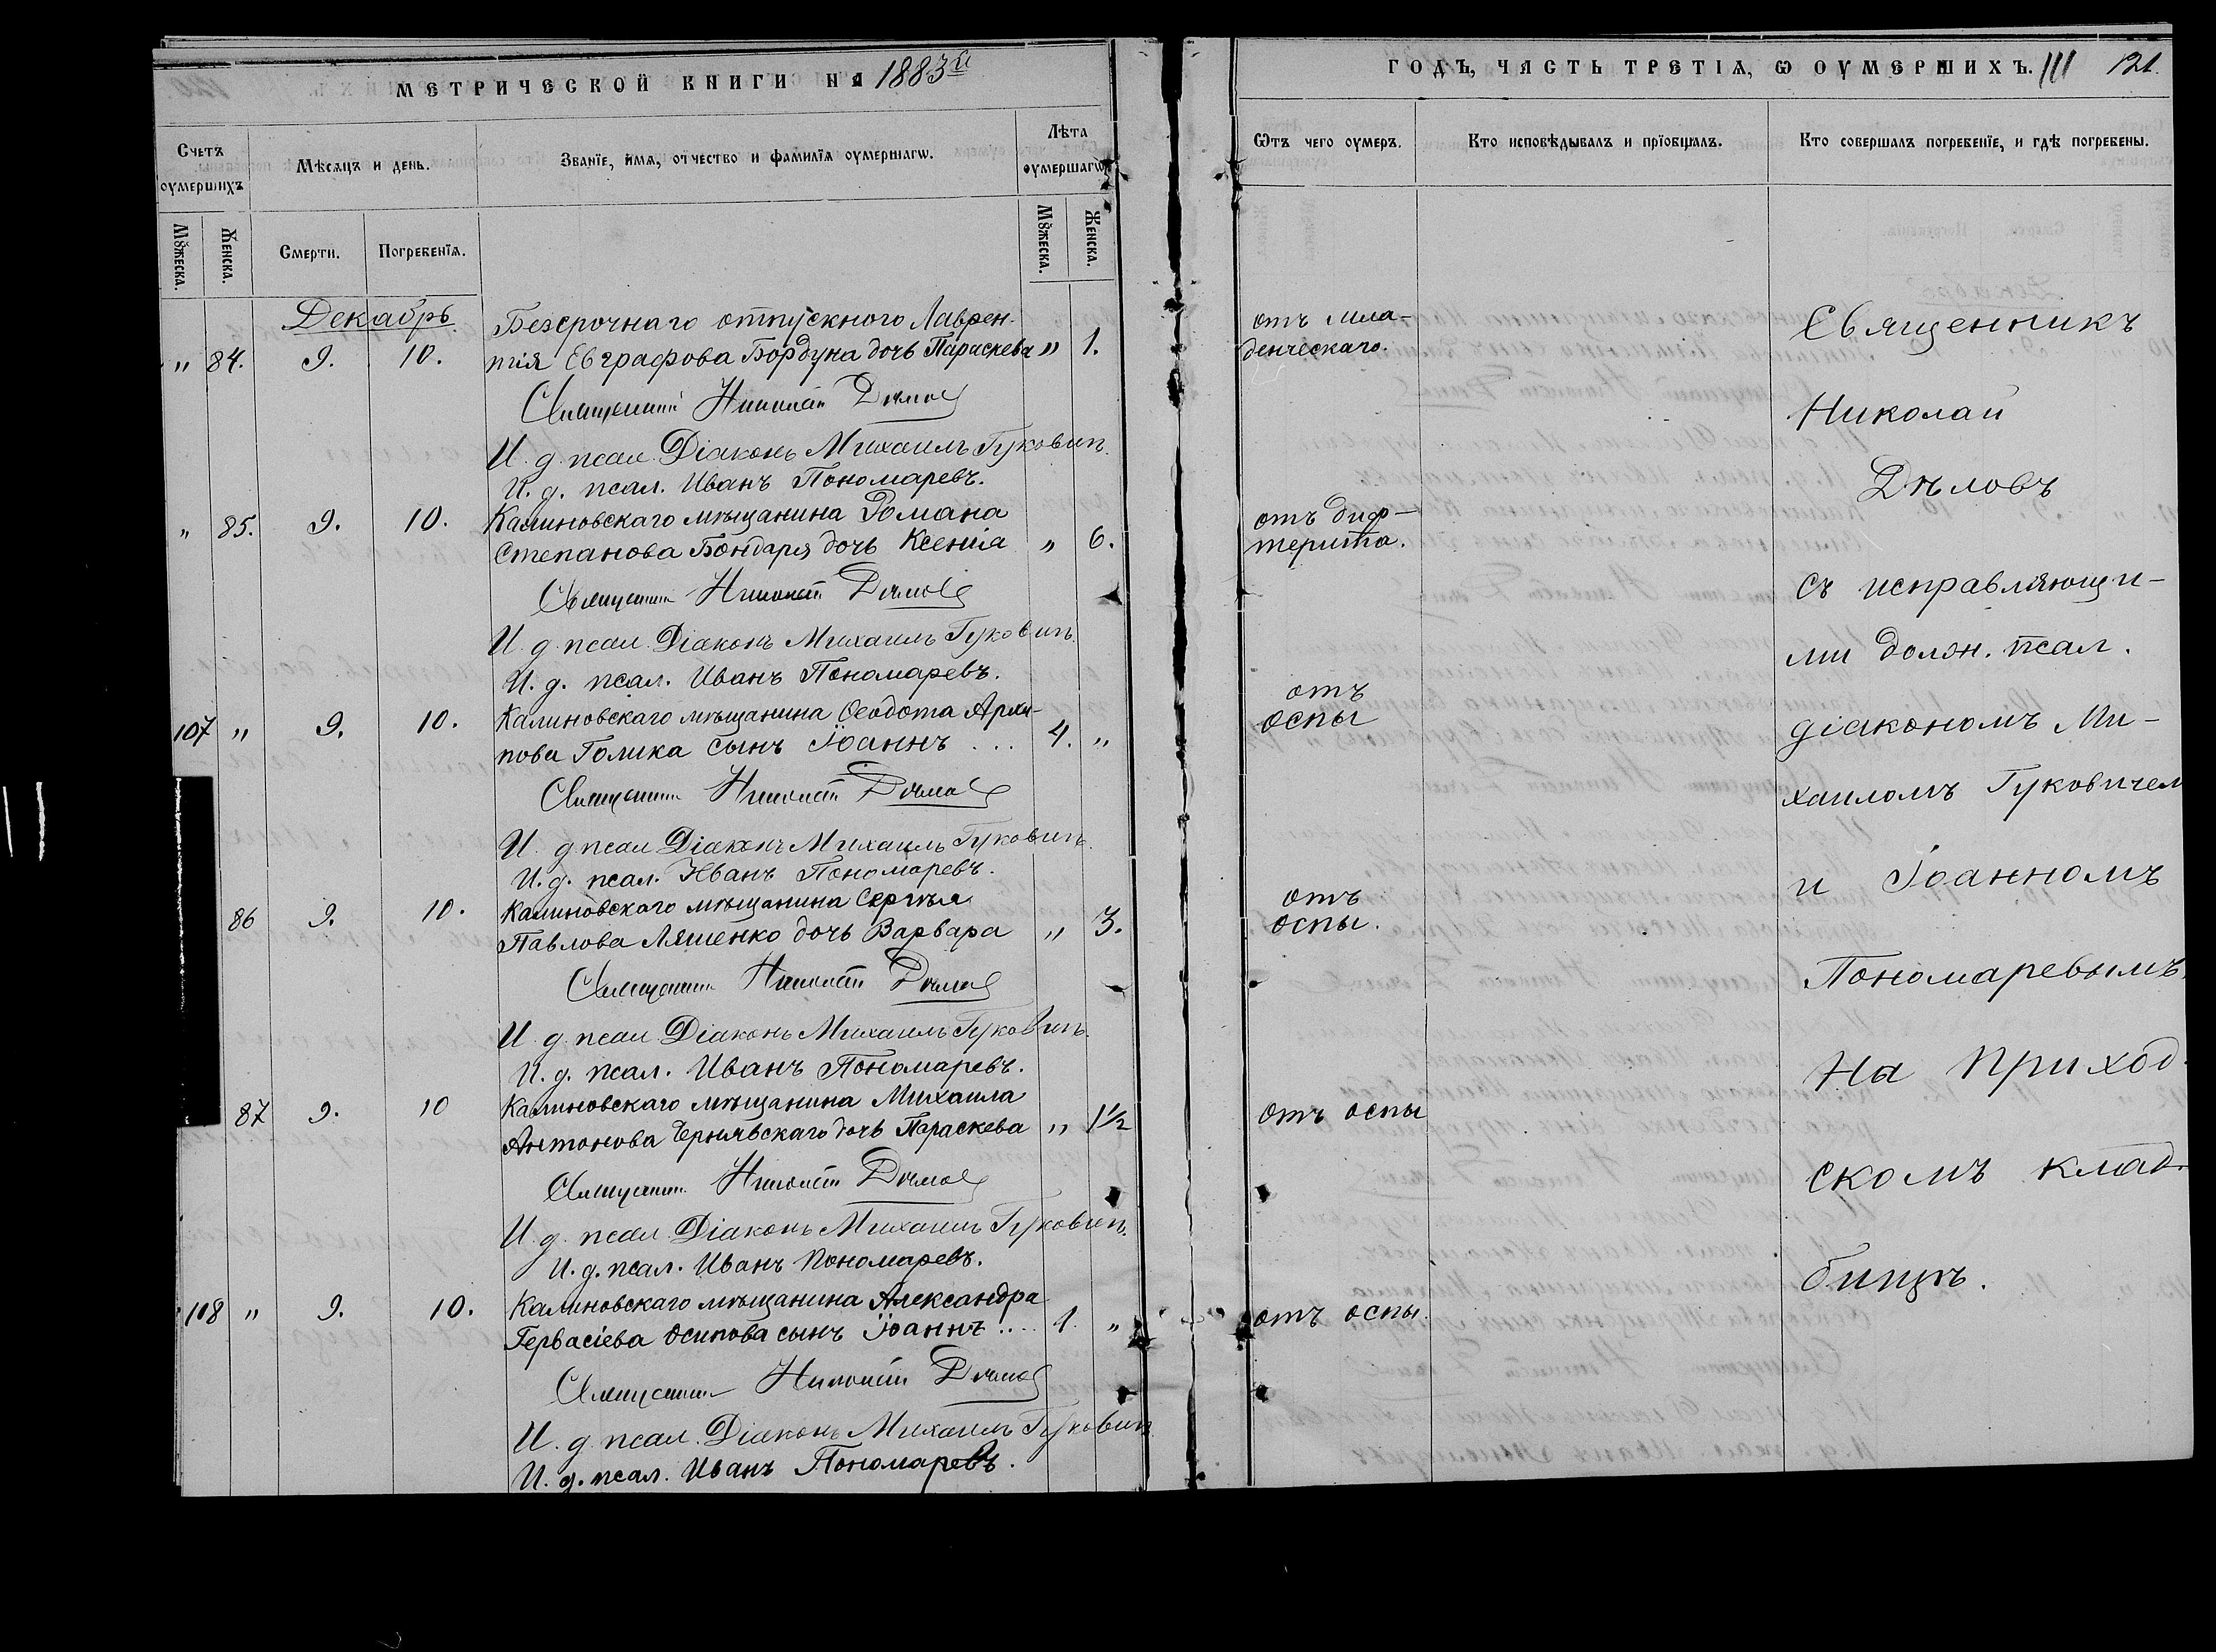 МЕТРИЧЕСКОЙ КНИГИ НА 1883й
Счетъ оумершихъ
Мѣсяцъ и день.
Званїе, имя, отчество и фамилїя оумершагѡ.
Лѣта оумершагѡ
Мꙋжеска.
Женска.
Смерти.
Погребенїя.
Мꙋжеска.
Женска.
Декабрь
Безсрочнаго отпускного Лаврен-
" 84. 9. 10. тія Евграфова Бордуна дочь Параскева " 1.
Священникъ Николай Дѣловъ
И. д. псал. Діаконъ Михаилъ Гуковичъ.
И. д. псал. Иванъ Пономаревъ.
" 85. 9. 10. Калиновскаго мѣщанина Романа
Степанова Бондаря дочь Ксенія " 6.
Священникъ Николай Дѣловъ
И. д. псал. Діаконъ Михаилъ Гуковичъ.
И. д. псал. Иванъ Пономаревъ.
107 " 9. 10. Калиновскаго мѣщанина Ѳеодота Архи-
пова Голика сынъ Іоаннъ ... 4. "
Священникъ Николай Дѣловъ
И. д. псал. Діаконъ Михаилъ Гуковичъ.
И. д. псал. Иванъ Пономаревъ.
86 9. 10. Калиновскаго мѣщанина Сергѣя
Павлова Ляшенко дочь Варвара " 3.
Священникъ Николай Дѣловъ
И. д. псал. Діаконъ Михаилъ Гуковичъ.
И. д. псал. Иванъ Пономаревъ.
87 9. 10 Калиновскаго мѣщанина Михаила
Антонова Чернявскаго дочь Параскева " 1½
Священникъ Николай Дѣловъ
И. д. псал. Діаконъ Михаилъ Гуковичъ.
И. д. псал. Иванъ Пономаревъ.
108 " 9. 10. Калиновскаго мѣщанина Александра
Гервасіева Осипова сынъ Іоаннъ .... 1. "
Священникъ Николай Дѣловъ
И. д. псал. Діаконъ Михаилъ Гуковичъ
И. д. псал. Иванъ Пономаревъ.
ГОДЪ, ЧАСТЬ ТРЕТІЯ, Ѡ ОУМЕРШИХЪ. III 121.
Ѿтъ чего оумеръ.
Кто исповѣдывалъ и прїобщалъ.
Кто совершалъ погребенїе, и гдѣ погребены.
отъ мла-
денческаго.
отъ диф-
терита.
отъ
оспы
отъ
оспы.
отъ оспы
отъ оспы.
Священникъ
Николай
Дѣловъ
съ исправляющи-
ми долж. псал.
діакономъ Ми-
хаиломъ Гуковичем
и Іоанномъ
Пономаревымъ.
На приход-
скомъ клад-
бищѣ.